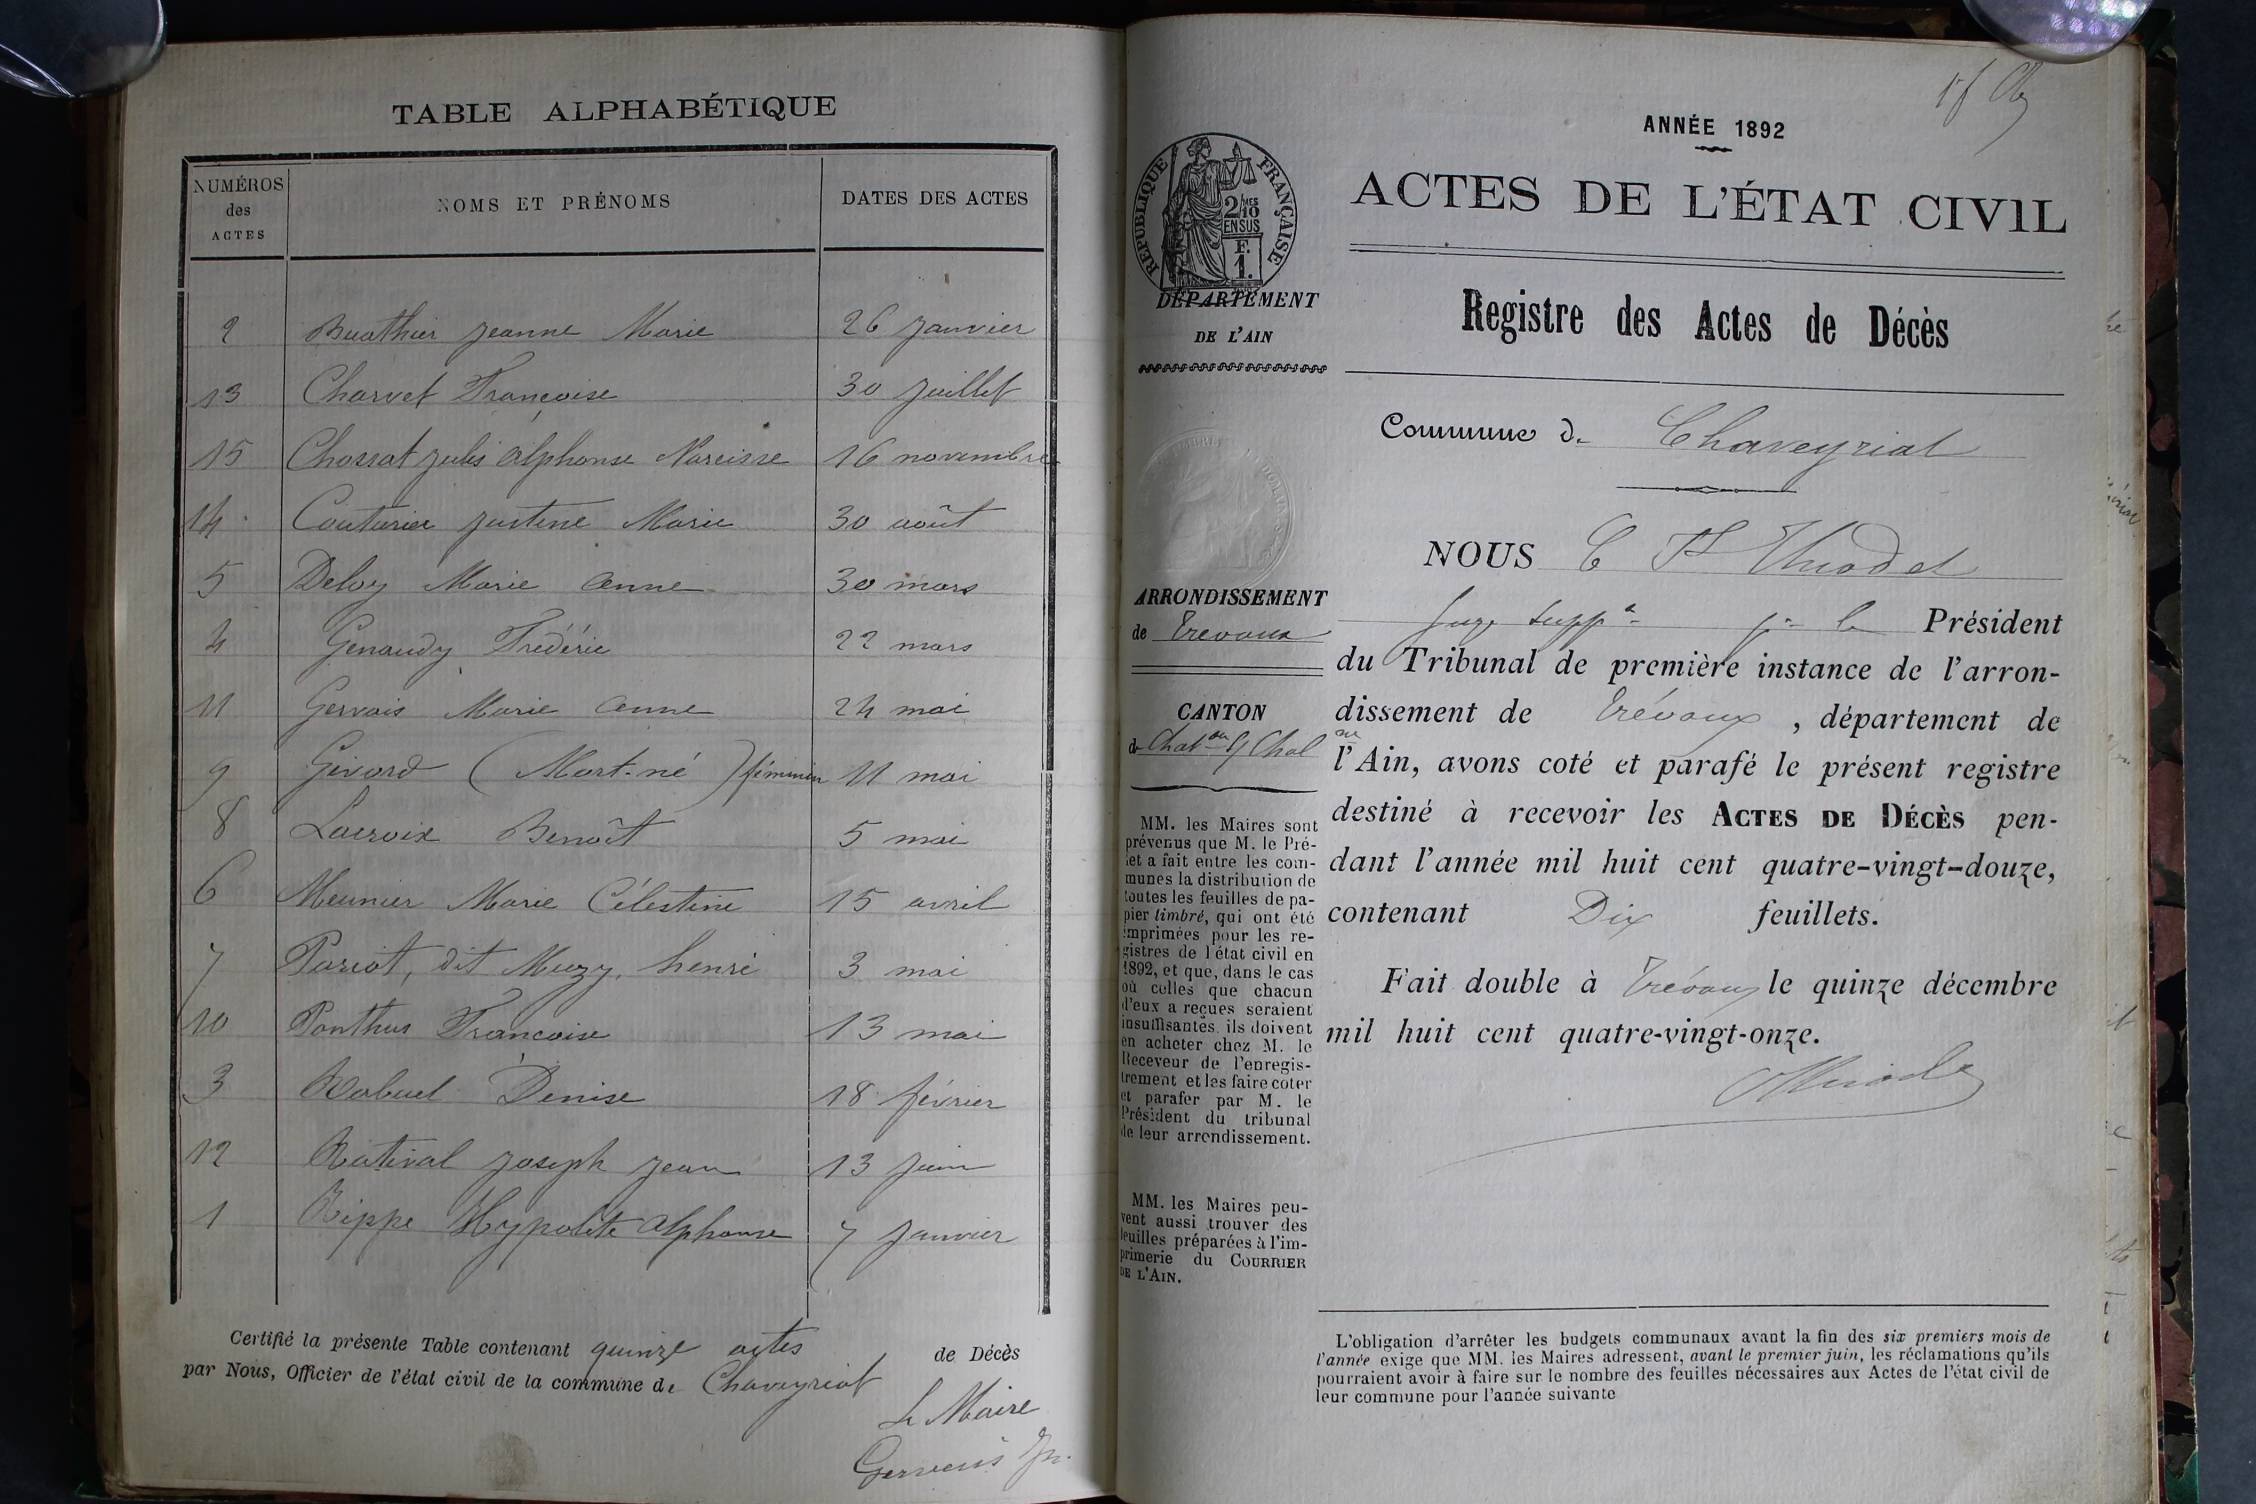 TABLE ALPHABÉTIQUE
NUMÉROS des ACTES
NOMS ET PRÉNOMS
DATES DES ACTES
2 Buathier Jeanne Marie 26 Janvier
13 Charvet Françoise 30 Juillet
15 Chossat Jules Alphonse Narcisse 16 novembre
14 Couturier Justine Marie 30 août
5 Deloy Marie Anne 30 mars
4 Genaudy Frédéric 22 mars
11 Gervais Marie Anne 24 mai
9 Givord (Mort-né) féminin 11 mai
8 Lacroix Benoît 5 mai
6 Meunier Marie Célestine 15 avril
7 Pariot, dit Muzy, henri 3 mai
10 Ponthus Francoise 13 mai
3 Rabuel Denise 18 février
12 Ratival Joseph Jean 13 Juin
1 Rippe Hypolite Alphonse 7 Janvier
Certifié la présente Table contenant quinze actes de Décès
par Nous, Officier de l'état civil de la commune de Chaveyriat
Le Maire
Gervais
ANNÉE 1892
RÉPUBLIQUE FRANÇAISE
2/10 MES
EN SUS
F.
1.
ACTES DE L'ÉTAT CIVIL
DÉPARTEMENT
DE L'AIN
Registre des Actes de Décès
Commune de Chaveyriat
NOUS C Thiodet
ARRONDISSEMENT
de Trévoux
Juge supp.t p.r le Président
du Tribunal de première instance de l'arron-
dissement de Trévoux, département de
l'Ain, avons coté et parafé le présent registre
destiné à recevoir les ACTES DE DÉCÈS pen-
dant l'année mil huit cent quatre-vingt-douze,
contenant Dix feuillets.
Fait double à Trévoux le quinze décembre
mil huit cent quatre-vingt-onze.
CANTON
de Chat.on s/ Chal.ne
MM. les Maires sont
prévenus que M. le Pré-
fet a fait entre les com-
munes la distribution de
toutes les feuilles de pa-
pier timbré, qui ont été
imprimées pour les re-
gistres de l'état civil en
1892, et que, dans le cas
où celles que chacun
d'eux a reçues seraient
insuffisantes, ils doivent
en acheter chez M. le
Receveur de l'enregis-
trement et les faire coter
et parafer par M. le
Président du tribunal
de leur arrondissement.
MM. les Maires peu-
vent aussi trouver des
feuilles préparées à l'im-
primerie du COURRIER
DE L'AIN.
L'obligation d'arrêter les budgets communaux avant la fin des six premiers mois de
l'année exige que MM. les Maires adressent, avant le premier juin, les réclamations qu'ils
pourraient avoir à faire sur le nombre des feuilles nécessaires aux Actes de l'état civil de
leur commune pour l'année suivante